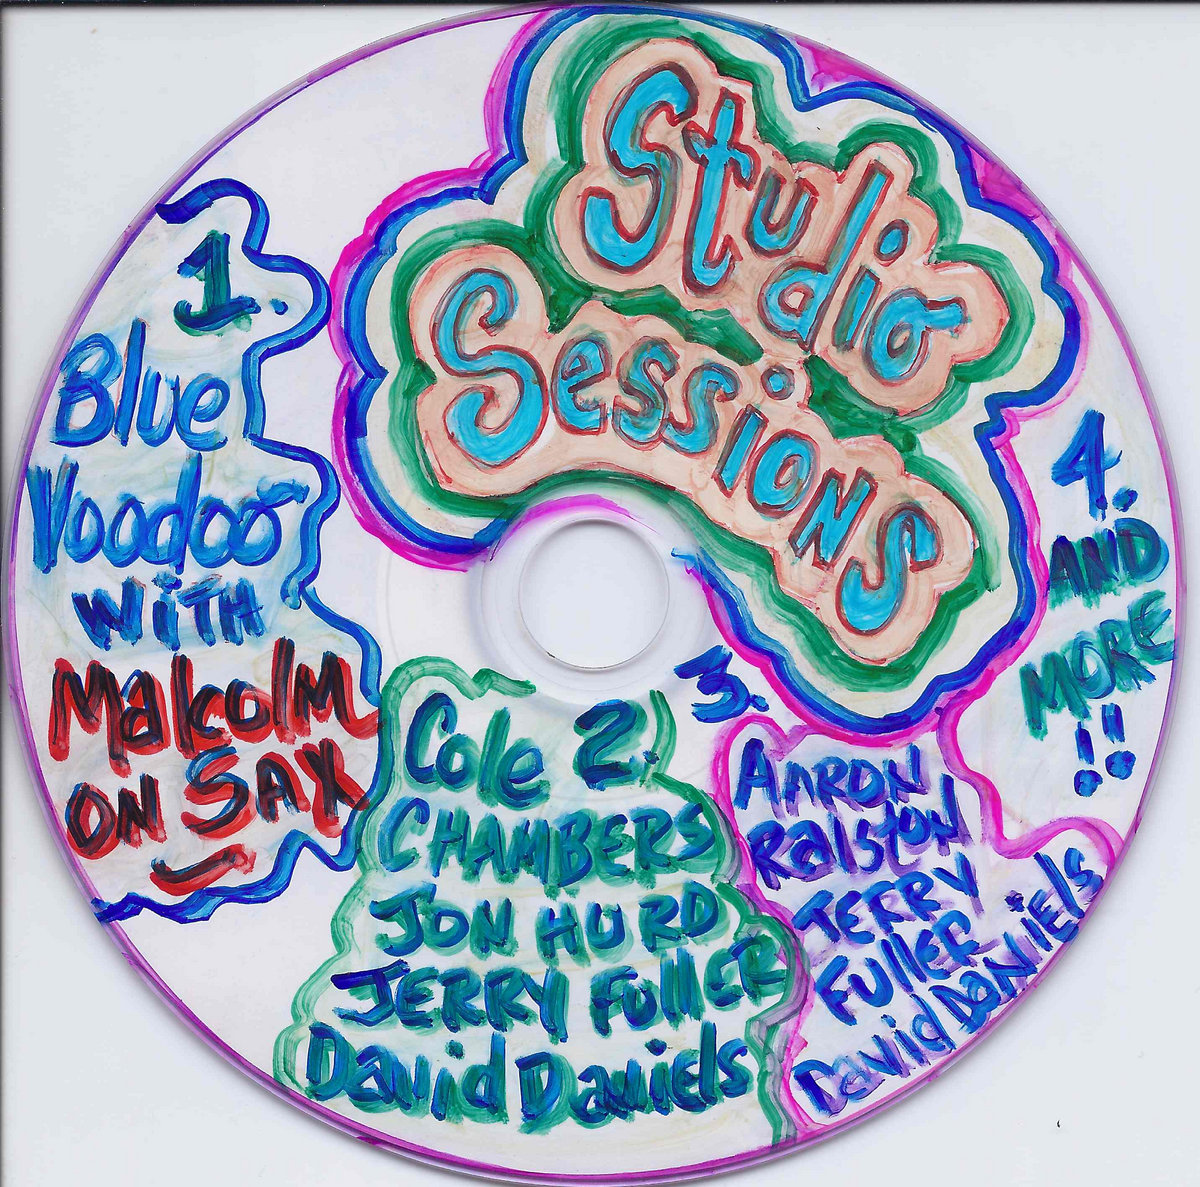 Studio
Sessions
1.
Blue
Voodoo
WiTH
Malcolm
ON SAX
Cole 2.
CHAMBERS
JON HURD
JERRY Fuller
David Daniels
3.
AARON
Ralston
JERRY
Fuller
David Daniels
4.
AND
MORE
!!